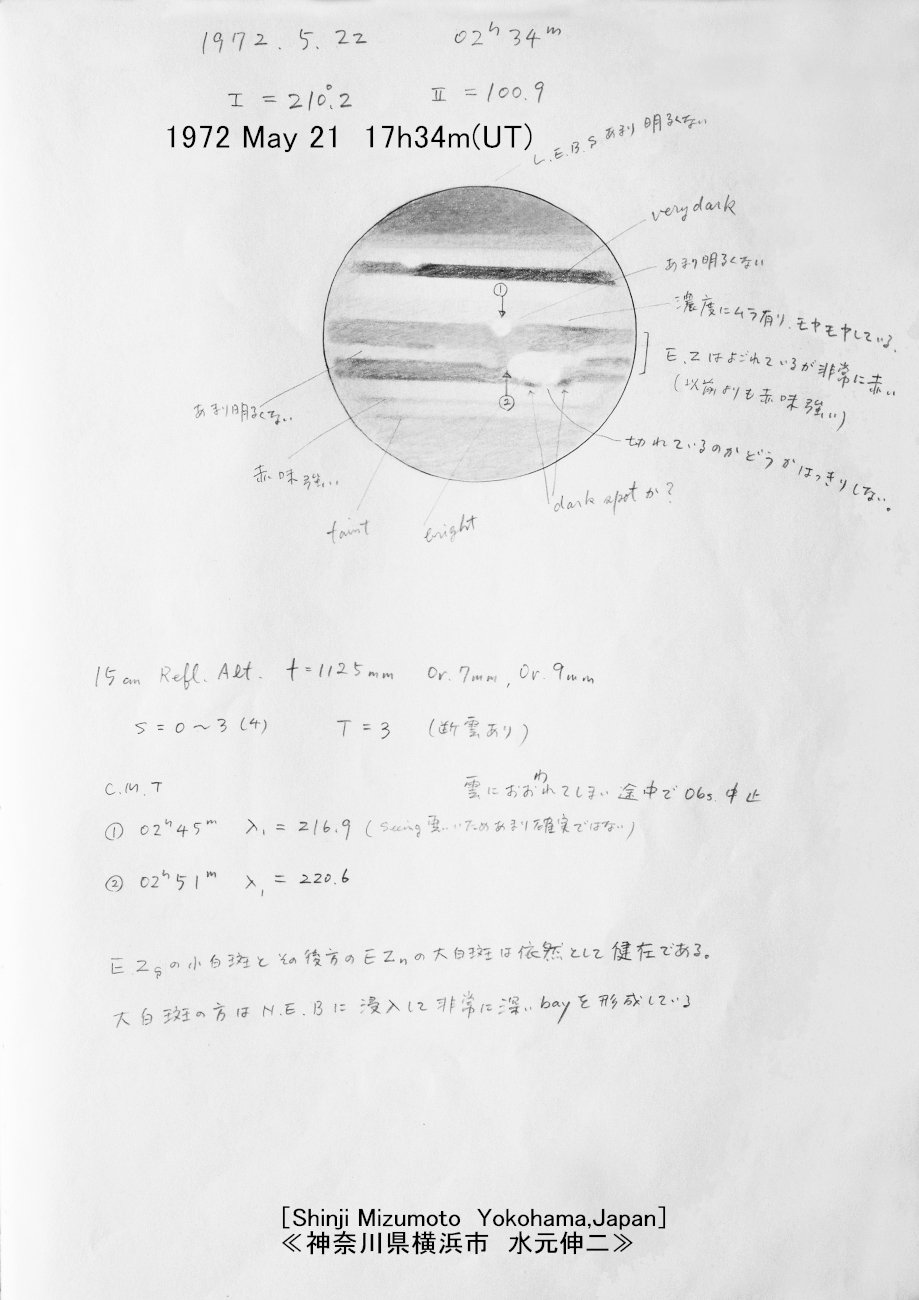 1972. 5. 22 02ʰ 34ᵐ
I = 210°.2 II = 100.9
1972 May 21 17h34m(UT)
L.E.B.S あまり明るくない
very dark
あまり明るくない
①
濃度にムラ有り、モヤモヤしている。
E.Zはよごれているが非常に赤い
(以前よりも赤味強い)
②
あまり明るくない
切れているのかどうかはっきりしない。
赤味強い
dark spotか?
faint
bright
15cm Refl. Alt. f=1125mm Or.7mm, Or.9mm
S = 0～3(4) T = 3 (断雲あり)
C.M.T
雲におおわれてしまい途中でObs.中止
① 02ʰ45ᵐ λ₁ = 216.9 (Seeing悪いためあまり確実ではない)
② 02ʰ51ᵐ λ₁ = 220.6
E.Zsの小白斑とその後方のEZnの大白斑は依然として健在である。
大白斑の方はN.E.Bに浸入して非常に深いbayを形成している
[Shinji Mizumoto Yokohama,Japan]
≪神奈川県横浜市 水元伸二≫